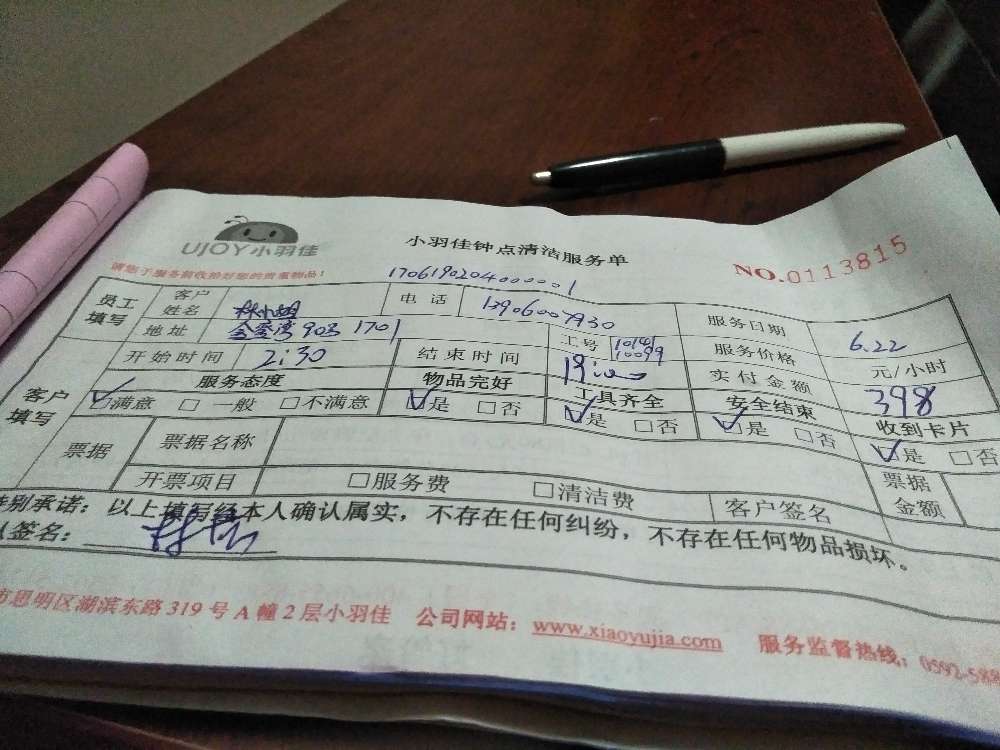 UJOY小羽佳
小羽佳钟点清洁服务单
NO.0113815
请您于服务前收拾好您的贵重物品!
170619020400001
员工填写 客户姓名 电话 13906007930 服务日期 6.22
地址 金鸡湾 903 1701 工号 10141 10099 服务价格 元/小时
客户填写 开始时间 2:30 结束时间 实付金额 398
服务态度 物品完好 工具齐全 安全结束 收到卡片
满意 一般 不满意 是 否 是 否 是 否 是 否
票据 票据名称 票据金额
开票项目 服务费 清洁费 客户签名
特别承诺:以上填写经本人确认属实,不存在任何纠纷,不存在任何物品损坏。
签名:
市思明区湖滨东路319号A幢2层小羽佳 公司网站:www.xiaoyujia.com 服务监督热线:0592-588